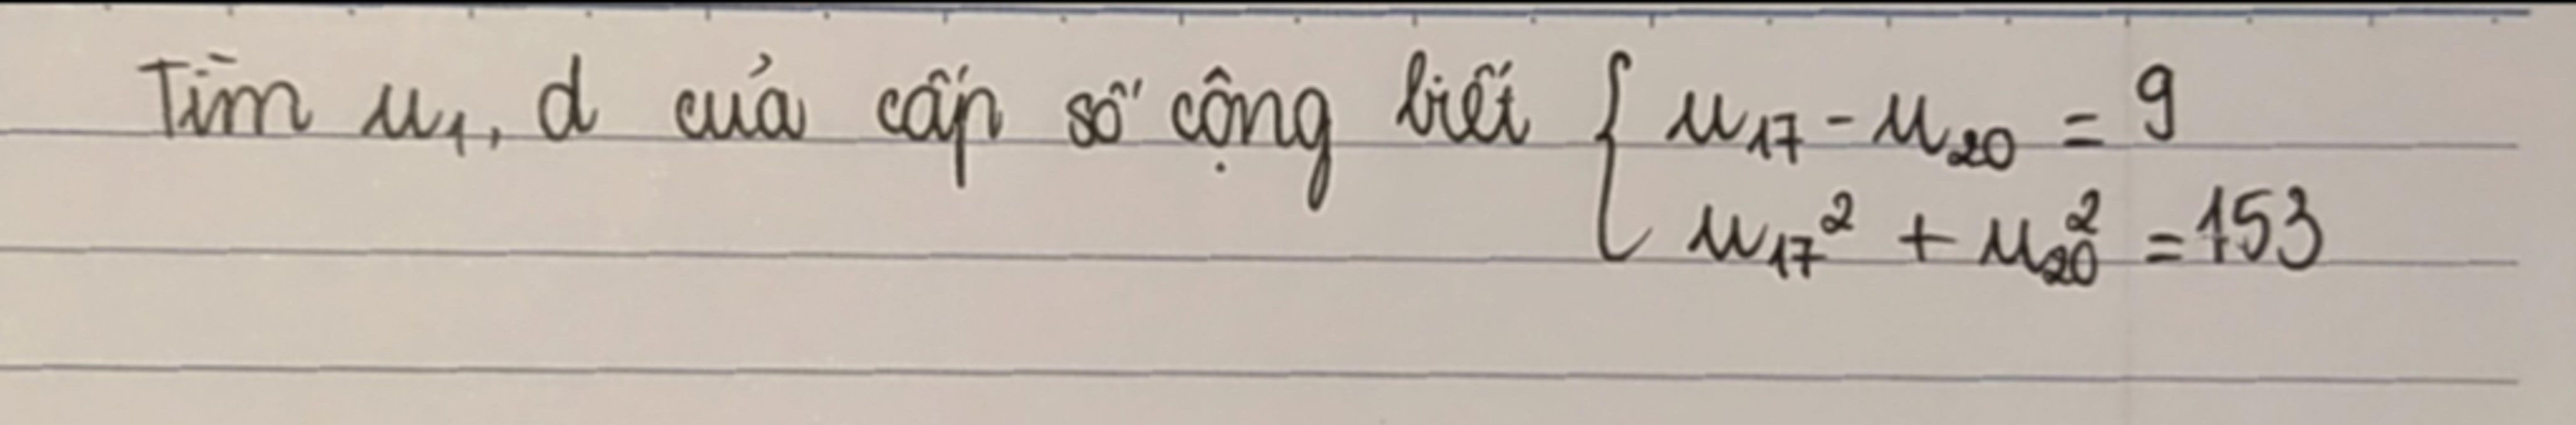 Tìm u₁, d của cấp số cộng biết { u₁₇ - u₂₀ = 9
u₁₇² + u₂₀² = 153